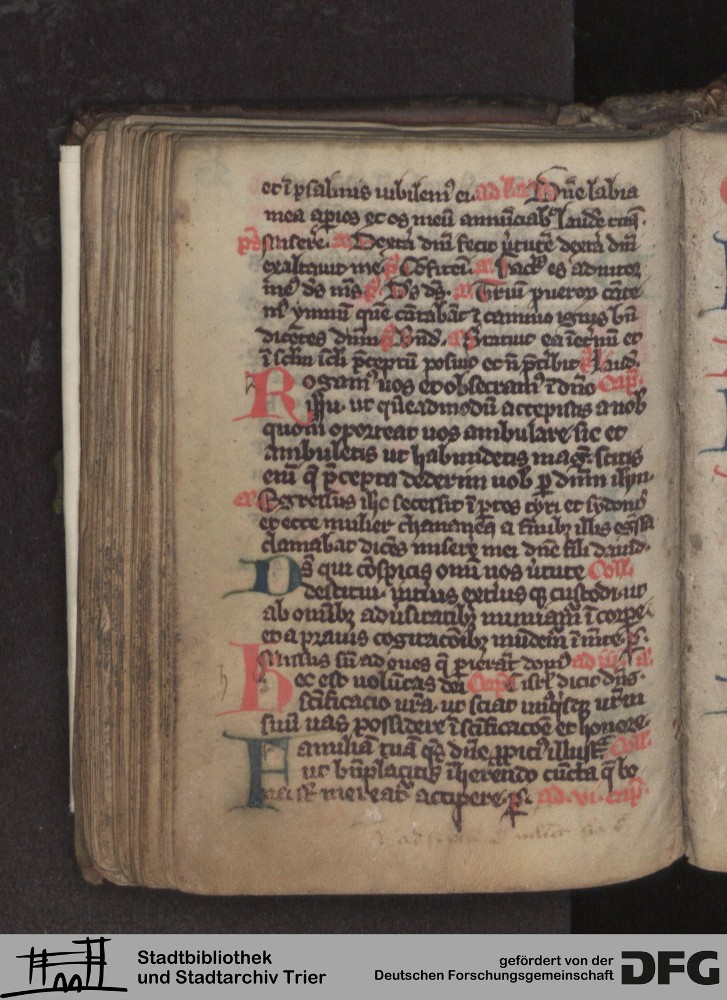 et ī psalmis iubilem⁹ ei. ad lau Dn̄e labia
mea apies et os meū annūciab laudē tuā.
ps Miserē. a Dextā dn̄i fecit ūtutē dextā dn̄i
exaltauit me. ps Cōfitem̄. a Fact⁹ es adiutor
me⁹ ds m̄s. ps Ds ds. a Triū pueroꝝ cāte
m⁹ ymnū quē cātabāt ī camino ignis bn̄
dicētes dn̄m. ps Bn̄d. a Statuit ea ī etnū et
ī sclm scli p̄ceptū posuit et n̄ p̄tibit. ps Laud.
Rogam⁹ uos et obsecram⁹ ī dn̄o Cap̄.
ihu. ut quēadmodū accepistis a nob
quom oporteat uos ambulare sic et
ambuletis ut habundetis mag. scitis
enī q̄ p̄cepta dederim uob p dn̄m ihm.
ev Egressus ihc secessit ī ptes tyri et sydonis
et ecce mulier chananea a finibꝫ illis eg̃ssa
clamabat dicēs miserē mei dn̄e fili dauid.
Ds qui cōspicis omī nos ūtute Coll.
destitui. intius extiusqꝫ custodi. ut
ab omībꝫ aduisitatibꝫ muniam̄ ī corpe.
et a prauis cogitacōibꝫ mūdem̄ ī mte. p.
Missus sū ad oues q̄ pierāt dom⁹ ad iii. a.
Hec est volūtas dei Cap̄ isrl dicit dn̄s.
scīficacio ur̄a. ut sciat unusqsqꝫ ur̄m
suū uas possidere ī scīficacōe et honore.
Familiā tuā qs dn̄e ꝓpici⁹ illustᵃ Coll.
ut bn̄placitis īherendo cūcta q̄ bo
na sūt mereat̄ accipere. p. ad vi. cap̄.
Stadtbibliothek
und Stadtarchiv Trier
gefördert von der
Deutschen Forschungsgemeinschaft
DFG